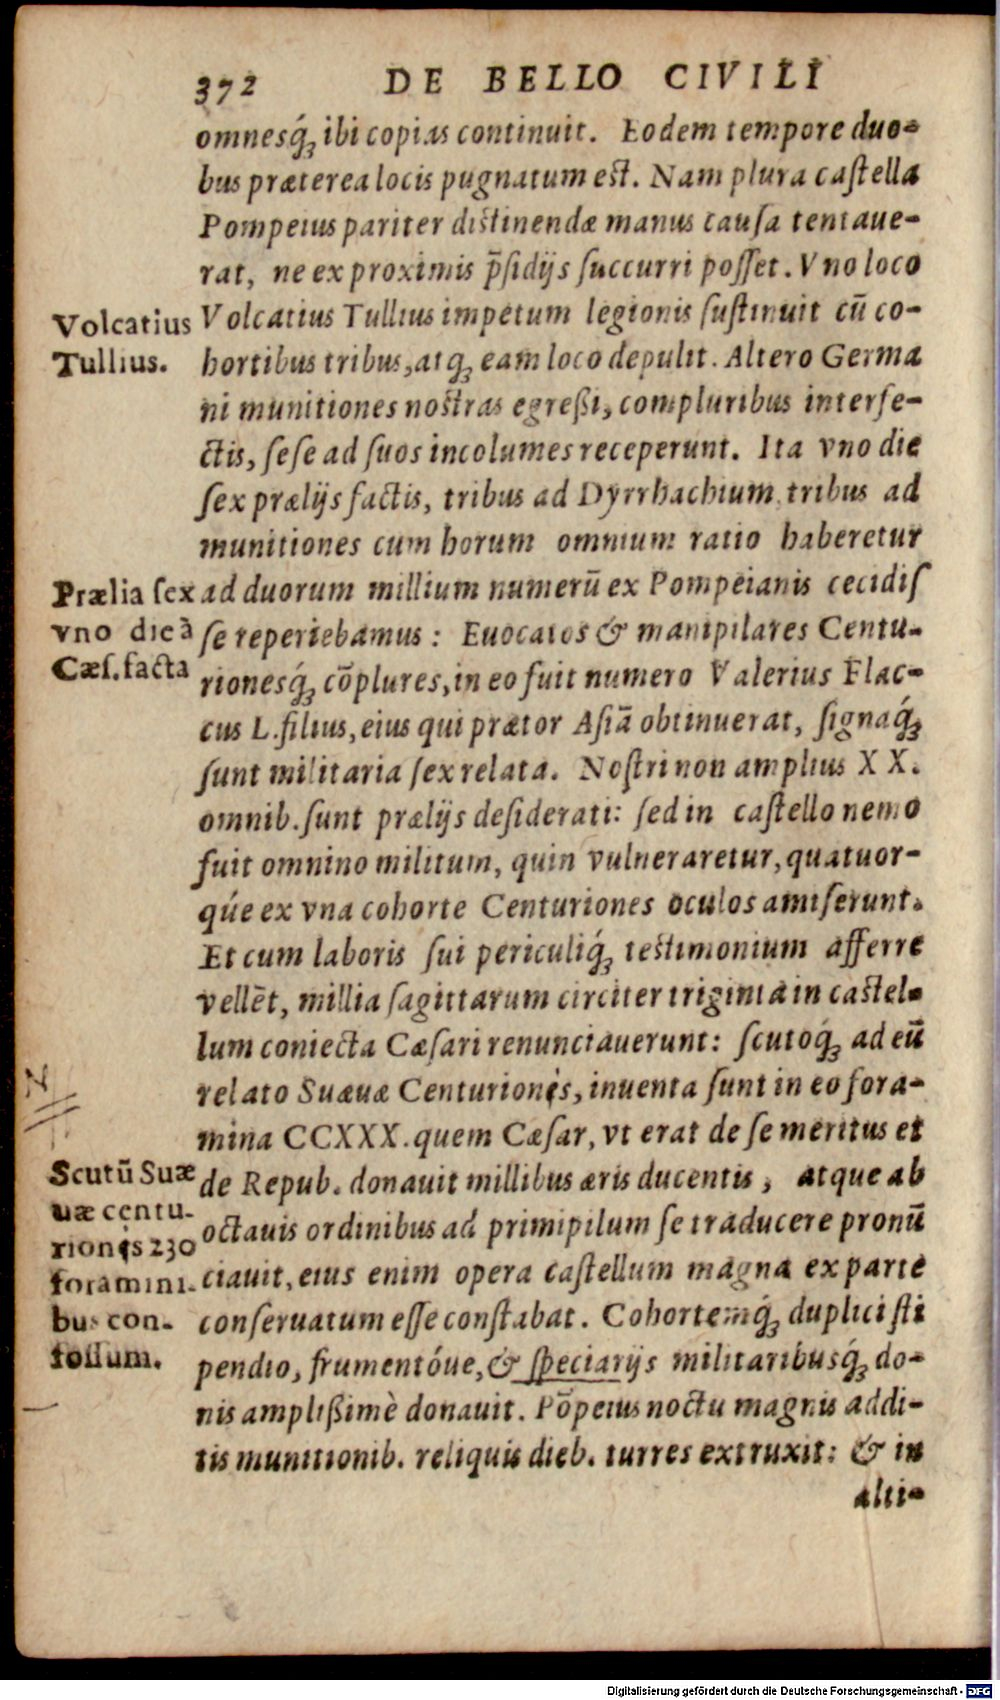 372 DE BELLO CIVILI
omnesq́ꝫ ibi copias continuit. Eodem tempore duo-
bus præterea locis pugnatum est. Nam plura castella
Pompeius pariter distinendæ manus causa tentaue-
rat, ne ex proximis p̄sidijs succurri posset. Vno loco
Volcatius Tullius impetum legionis sustinuit cū co-
hortibus tribus, atqꝫ eam loco depulit. Altero Germa
ni munitiones nostras egreßi, compluribus interfe-
ctis, sese ad suos incolumes receperunt. Ita vno die
sex prælijs factis, tribus ad Dyrrhachium tribus ad
munitiones cum horum omnium ratio haberetur
ad duorum millium numerū ex Pompeianis cecidis
se reperiebamus: Euocatos & manipilares Centu-
rionesq́ꝫ cōplures, in eo fuit numero Valerius Flac-
cus L. filius, eius qui prætor Asiā obtinuerat, signaq́ꝫ
sunt militaria sex relata. Nostri non amplius XX.
omnib. sunt prælijs desiderati: sed in castello nemo
fuit omnino militum, quin vulneraretur, quatuor-
qúe ex vna cohorte Centuriones oculos amiserunt.
Et cum laboris sui periculiq́ꝫ testimonium afferre
vellēt, millia sagittarum circiter triginta in castel-
lum coniecta Cæsari renunciauerunt: scutoq́ꝫ ad eū
relato Suæuæ Centurionis, inuenta sunt in eo fora-
mina CCXXX. quem Cæsar, vt erat de se meritus et
de Repub. donauit millibus æris ducentis, atque ab
octauis ordinibus ad primipilum se traducere pronū
ciauit, eius enim opera castellum magna ex parte
conseruatum esse constabat. Cohortemq́ꝫ duplici sti
pendio, frumentóue, & speciarijs militaribusq́ꝫ do-
nis amplißimè donauit. Pōpeius noctu magnis addi-
tis munitionib. reliquis dieb. turres extruxit: & in
alti-
Volcatius
Tullius.
Prælia sex
vno die à
Cæs. facta
Scutū Suæ
uæ centu-
rionis 230
foramini-
bus con-
fossum.
Digitalisierung gefördert durch die Deutsche Forschungsgemeinschaft - DFG